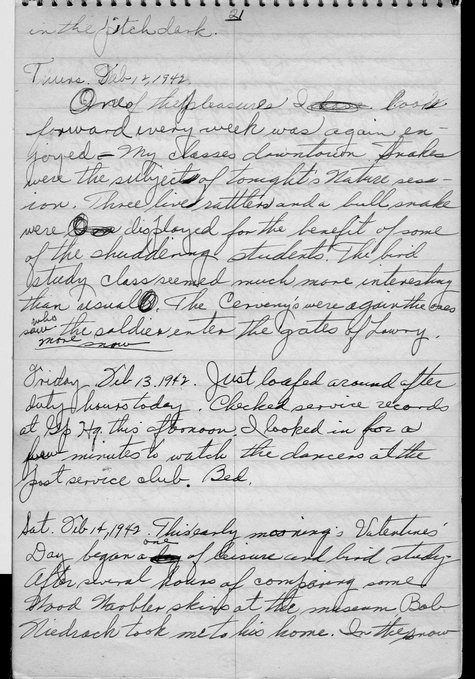 21
in the pitch dark.
Thurs. Feb 12, 1942
One of the pleasures I look
forward every week was again en-
joyed = My classes downtown. Snakes
were the subject of tonight's Nature sess-
ion. Three live rattlers and a bull snake
were displayed for the benefit of some
of the shuddering students. The bird
study class seemed much more interesting
than usual. The Cerveny's were again the ones
who saw the soldier enter the gates of Lowry.
more snow
Friday Feb 13, 1942. Just loafed around after
duty hours today. Checked service records
at Gp Hq. this afternoon. I looked in for a
few minutes to watch the dancers at the
post service club. Bed.
Sat. Feb 14, 1942. This early morning's Valentines'
Day began a one of leisure and bird study.
After several hours of comparing some
Wood Warbler skins at the museum Bob
Niedrach took me to his home. In the snow